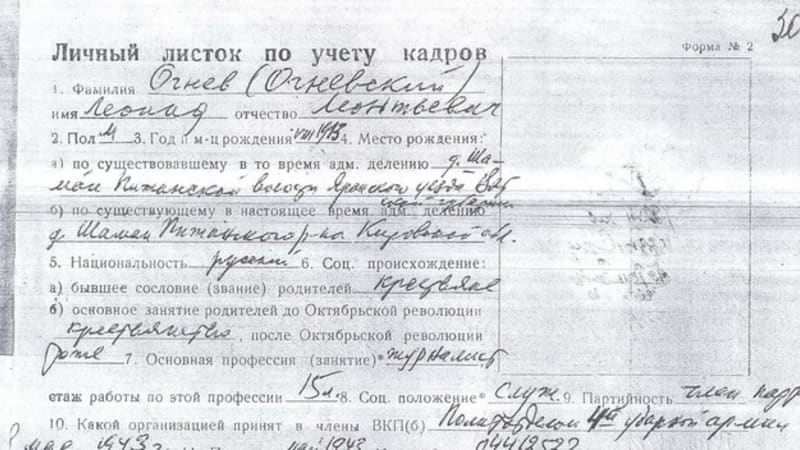 30
Личный листок по учету кадров
Форма № 2
1. Фамилия Огнев (Огневский)
имя Леонид отчество Леонтьевич
2. Пол М 3. Год и м-ц рождения VIII 1913 4. Место рождения:
а) по существовавшему в то время адм. делению д. Ша-
май Пижанской волости Яранского уезда Вят
ской губернии
б) по существующему в настоящее время адм. делению
д. Шамаи Пижанского р-на Кировской обл.
5. Национальность русский 6. Соц. происхождение:
а) бывшее сословие (звание) родителей крестьяне
б) основное занятие родителей до Октябрьской революции
крестьянство, после Октябрьской революции
тоже 7. Основная профессия (занятие)* журналист
стаж работы по этой профессии 15 л. 8. Соц. положение* служ. 9. Партийность член
10. Какой организацией принят в члены ВКП(б) Политотделом 4й ударной армии
1943 май 1943